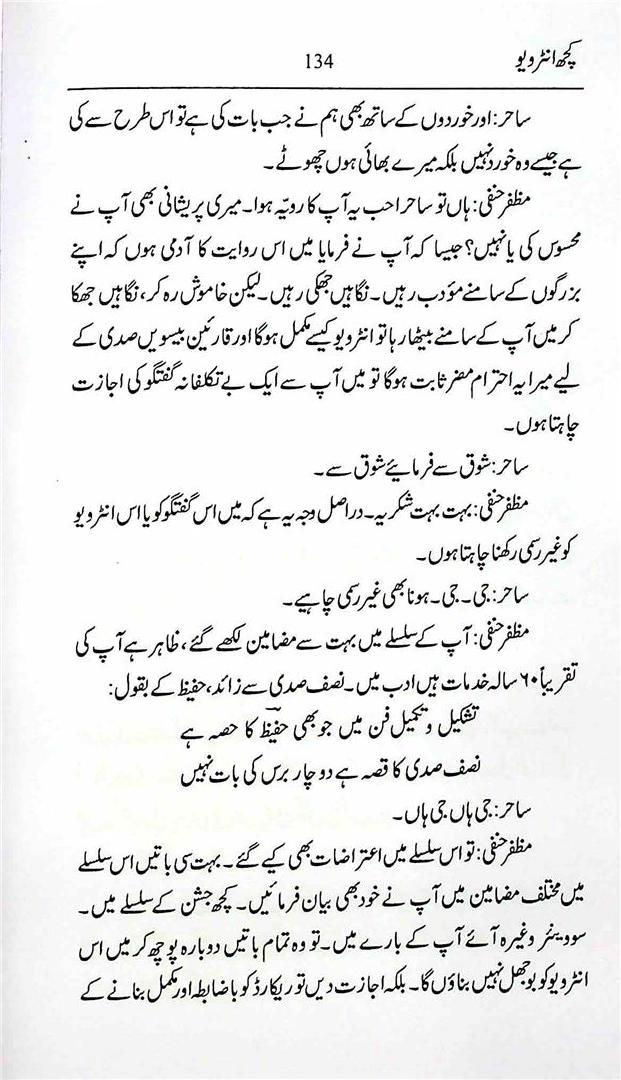 کچھ انٹرویو
134
ساحر: اور خوردوں کے ساتھ بھی ہم نے جب بات کی ہے تو اس طرح سے کی
ہے جیسے وہ خورد نہیں بلکہ میرے بھائی ہوں چھوٹے۔
مظفر حنفی: ہاں تو ساحر احب یہ آپ کا رویّہ ہوا۔ میری پریشانی بھی آپ نے
محسوس کی یا نہیں؟ جیسا کہ آپ نے فرمایا میں اس روایت کا آدمی ہوں کہ اپنے
بزرگوں کے سامنے مؤدب رہیں۔ نگاہیں جھکی رہیں۔ لیکن خاموش رہ کر، نگاہیں جھکا
کر میں آپ کے سامنے بیٹھا رہا تو انٹرویو کیسے مکمل ہوگا اور قارئین بیسویں صدی کے
لیے میرا یہ احترام مضر ثابت ہوگا تو میں آپ سے ایک بے تکلفانہ گفتگو کی اجازت
چاہتا ہوں۔
ساحر: شوق سے فرمائیے شوق سے۔
مظفر حنفی: بہت بہت شکریہ۔ دراصل وجہ یہ ہے کہ میں اس گفتگو کو یا اس انٹرویو
کو غیر رسمی رکھنا چاہتا ہوں۔
ساحر: جی۔ جی۔ ہونا بھی غیر رسمی چاہیے۔
مظفر حنفی: آپ کے سلسلے میں بہت سے مضامین لکھے گئے، ظاہر ہے آپ کی
تقریباً ۶۰ سالہ خدمات ہیں ادب میں۔ نصف صدی سے زائد، حفیظ کے بقول:
تشکیل و تکمیل فن میں جو بھی حفیظؔ کا حصہ ہے
نصف صدی کا قصہ ہے دو چار برس کی بات نہیں
ساحر: جی ہاں جی ہاں۔
مظفر حنفی: تو اس سلسلے میں اعتراضات بھی کیے گئے۔ بہت سی باتیں اس سلسلے
میں مختلف مضامین میں آپ نے خود بھی بیان فرمائیں۔ کچھ جشن کے سلسلے میں۔
سووینئر وغیرہ آئے آپ کے بارے میں۔ تو وہ تمام باتیں دوبارہ پوچھ کر میں اس
انٹرویو کو بوجھل نہیں بناؤں گا۔ بلکہ اجازت دیں تو ریکارڈ کو باضابطہ اور مکمل بنانے کے